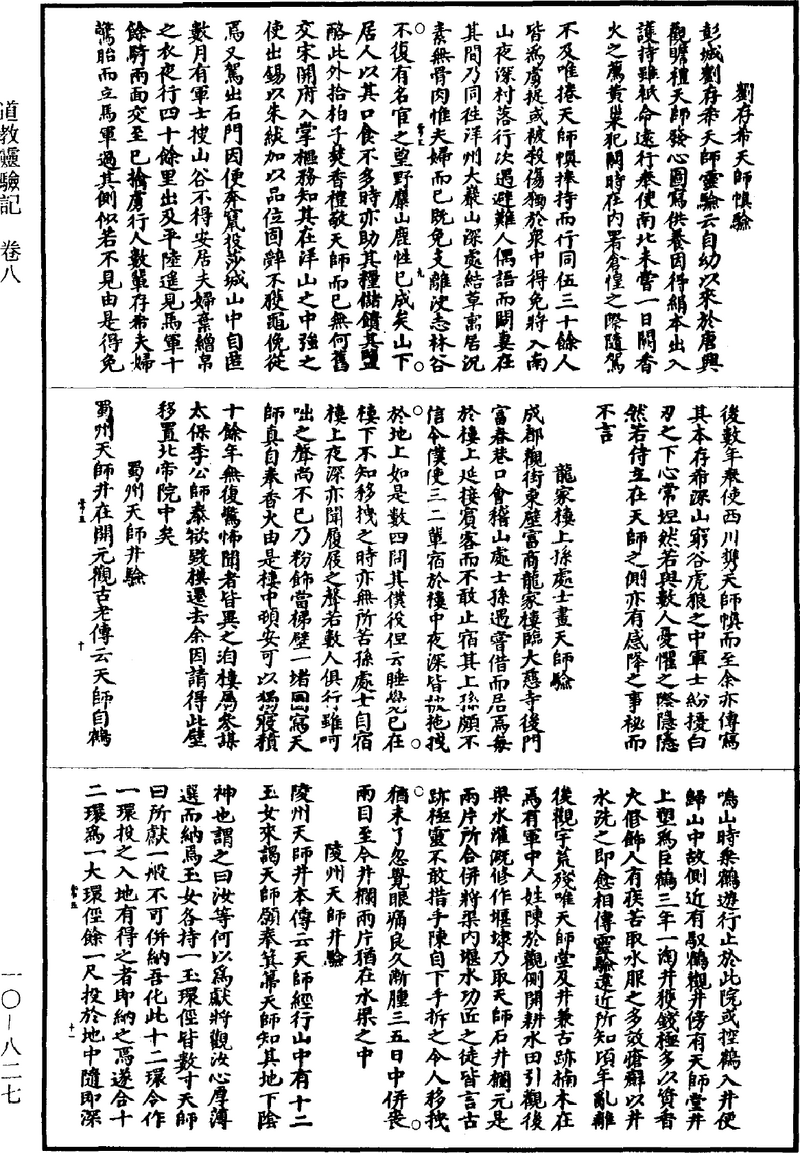 道教靈驗記　卷八
劉存希天師幀驗
彭城劉存希天師靈驗云自幼以來於唐興
觀瞻禮天師發心圖寫供養因得絹本出入
護持雖祇命遠行奉使南北未嘗一日闕香
火之薦黃巢犯闕時在內署倉惶之際隨駕
不及唯捲天師幀捧持而行同伍三十餘人
皆為虜捉或被殺傷獨於衆中得免將入南
山夜深村落行次遇避難人偶語而闘妻在
其間乃同往洋州大巖山深處結草寓居況
素無骨肉惟夫婦而已既免支離便志林谷
不復有名宦之望野麋山鹿性已成矣山下
居人以其口食不多時亦助其糧儲饋其鹽
酪此外拾柏子焚香禮敬天師而已無何舊
交宋開府入掌樞務知其在洋山之中強之
使出錫以朱紱加以品位固辭不獲黽俛從
焉又駕出石門因便奔竄投莎城山中自匿
數月有軍士搜山谷不得安居夫婦棄繒帛
之衣夜行四十餘里出及平陸遥見馬軍十
餘騎兩面交至已擒虜行人數輩存希夫婦
驚胎而立馬軍過其側似若不見由是得免
常五
九
後數年奉使西川携天師幀而至余亦傳寫
其本存希深山窮谷虎狼之中軍士紛擾白
刃之下心常坦然若與數人憂懼之際隱隱
然若侍立在天師之側亦有感降之事祕而
不言
龍家樓上孫處士畫天師驗
成都觀街東壁富商龍家樓臨大慈寺後門
富春巷口會稽山處士孫遇嘗借而居焉每
於樓上延接賓客而不敢止宿其上孫頗不
信令僕使三二輩宿於樓中夜深皆被拖拽
於地上如是數四問其僕役但云睡覺已在
樓下不知移拽之時亦無所苦孫處士自宿
樓上夜深亦聞履屐之聲若數人俱行雖呵
咄之聲尚不已乃粉飾當梯壁一堵圖寫天
師真自奉香火由是樓中頓安可以獨寢積
十餘年無復驚怖聞者皆異之洎樓為參謀
太保李公師泰欲毀樓還去余因請得此壁
移置北帝院中矣
蜀州天師井驗
蜀州天師井在開元觀古老傳云天師自鶴
常五
十
鳴山時乘鶴遊行止於此院或控鶴入井便
歸山中故側近有馭鶴觀井傍有天師堂井
上塑為巨鶴三年一淘井獲錢極多以資香
火修飾人有疾苦取水服之多效瘡癬以井
水洗之即愈相傳靈驗遠近所知頃年亂離
後觀宇荒殘唯天師堂及井兼古跡楠木在
焉有軍中人姓陳於觀側開耕水田引觀後
渠水灌溉修作堰埭乃取天師石井欄元是
兩片所合併將渠內堰水功匠之徒皆言古
跡極靈不敢措手陳自下手拆之令人移拽
猶未了忽覺眼痛良久漸腫三五日中併喪
兩目至今井欄兩片猶在水渠之中
陵州天師井驗
陵州天師井本傳云天師經行山中有十二
玉女來謁天師願奉箕箒天師知其地下陰
神也謂之曰汝等何以為獻將觀汝心厚薄
選而納焉玉女各持一玉環徑皆數寸天師
曰所獻一般不可併納吾化此十二環令作
一環投之入地有得之者即納之焉遂合十
二環為一大環徑餘一尺投於地中隨即深
常五
十一
一〇—八二七